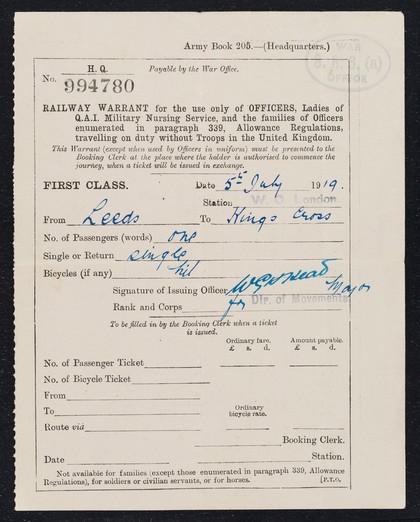 Army Book 205.—(Headquarters.)
WAR
OFFICE
H.Q. Payable by the War Office.
No. 994780
RAILWAY WARRANT for the use only of OFFICERS, Ladies of
Q.A.I. Military Nursing Service, and the families of Officers
enumerated in paragraph 339, Allowance Regulations,
travelling on duty without Troops in the United Kingdom.
This Warrant (except when used by Officers in uniform) must be presented to the
Booking Clerk at the place where the holder is authorised to commence the
journey, when a ticket will be issued in exchange.
FIRST CLASS. Date 5th July 1919.
Station W. O. London
From Leeds To Kings Cross
No. of Passengers (words) one
Single or Return single
Bicycles (if any) nil
Signature of Issuing Officer Major
Rank and Corps for Dir. of Movements
To be filled in by the Booking Clerk when a ticket
is issued.
Ordinary fare. Amount payable.
£ s. d. £ s. d.
No. of Passenger Ticket
No. of Bicycle Ticket
From
To Ordinary
bicycle rate.
Route via
Booking Clerk.
Date Station.
Not available for families (except those enumerated in paragraph 339, Allowance
Regulations), for soldiers or civilian servants, or for horses. [P.T.O.